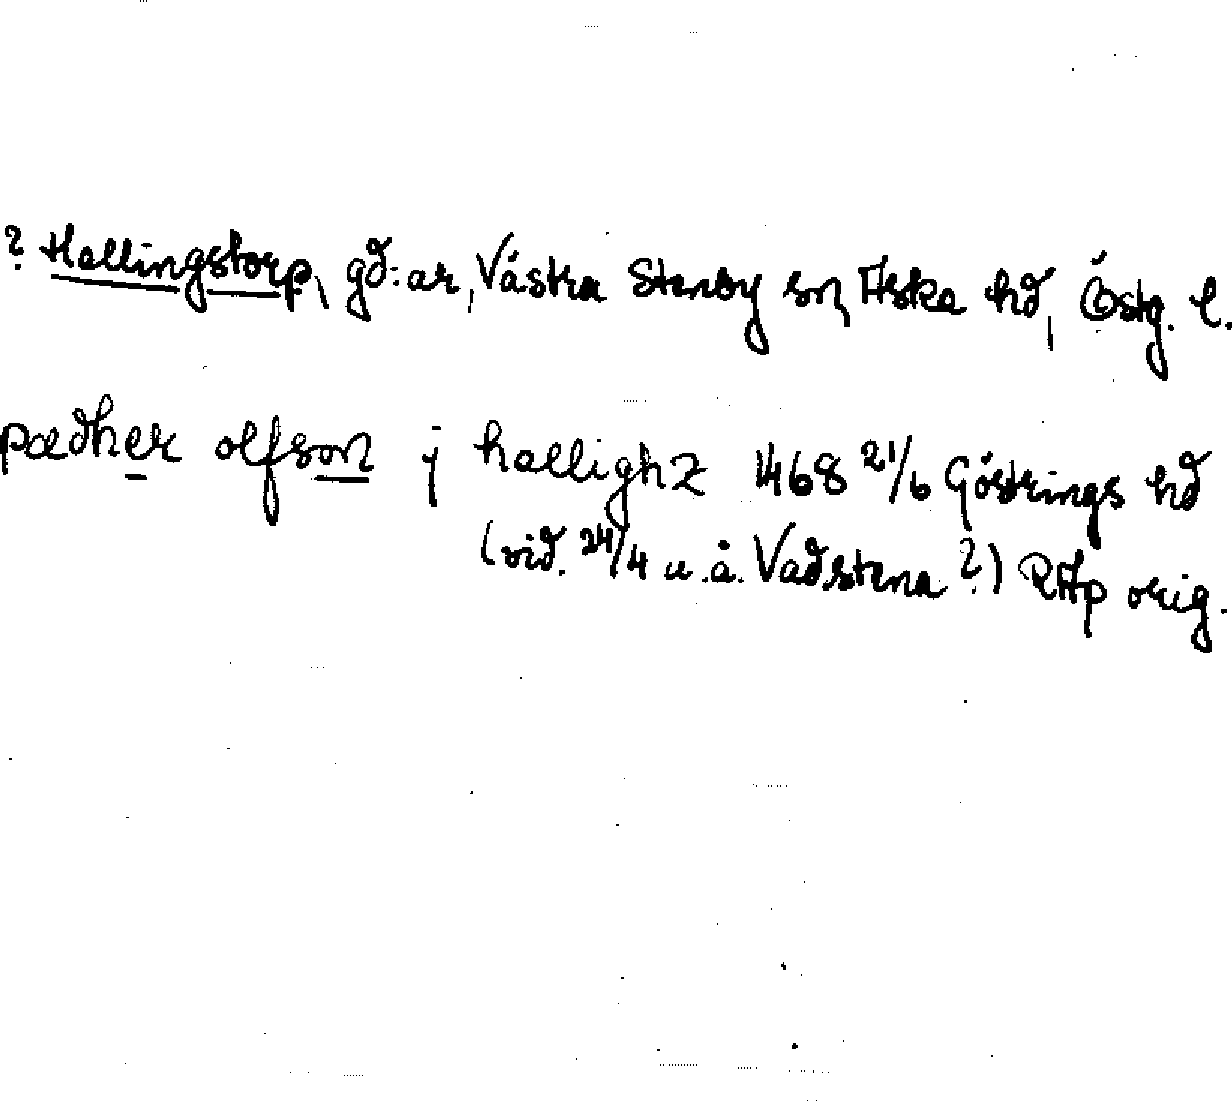 ? Hallingstorp, gd:ar, Västra Stenby sn, Aska hd, Östg. l.
pædher olfson j hællighz 1468 21/6 Göstrings hd
(vid. 24/4 u.å. Vadstena ?) RAp orig.